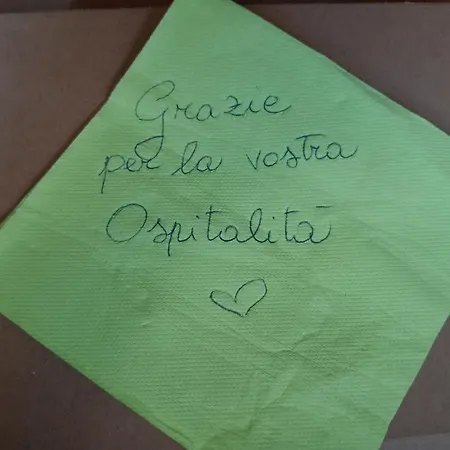 Grazie
per la vostra
Ospitalità